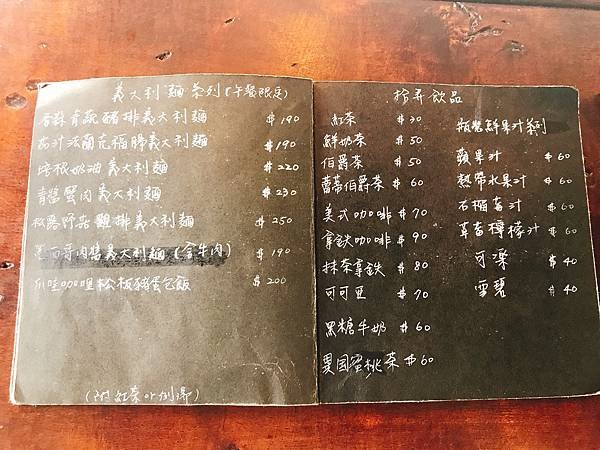 義大利麵系列(午餐限定)
香蒜青蔬豬排義大利麵 $190
茄汁法蘭克福腸義大利麵 $190
培根奶油義大利麵 $220
青醬蟹肉義大利麵 $230
松露野菇雞排義大利麵 $250
墨西哥肉醬義大利麵(含牛肉) $190
爪哇咖哩松板豬蛋包飯 $200
(附紅茶or例湯)
拾弄飲品
紅茶 $30
鮮奶茶 $50
伯爵茶 $50
蕾蒂伯爵茶 $60
美式咖啡 $70
拿鐵咖啡 $90
抹茶拿鐵 $80
可可亞 $70
黑糖牛奶 $60
異國蜜桃茶 $60
瓶裝鮮果汁系列
蘋果汁 $60
熱帶水果汁 $60
石榴莓汁 $60
草香檸檬汁 $60
可樂 $40
雪碧 $40